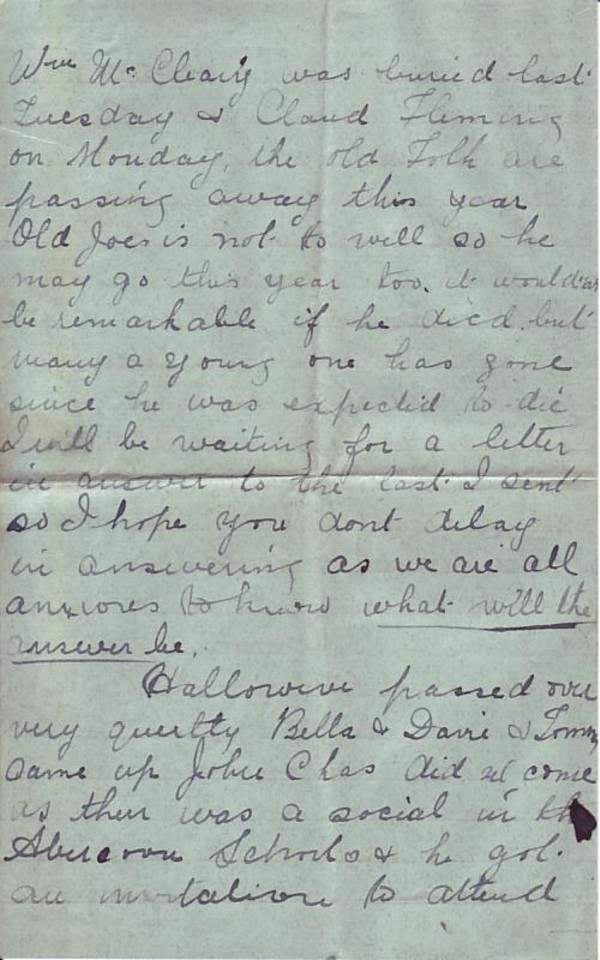 Wm Mc Cleary was buried last
Tuesday & Claud Fleming
on Monday, the old Folk are
passing away this year
Old Joe is not to well so he
may go this year too. it would
be remarkable if he died. but
many a young one has gone
since he was expected to die
I will be waiting for a letter
in answer to the last I sent
so I hope you dont delay
in answering as we are all
anxious to know what will the
answer be.
Halloween passed over
very quietly Bella & Davie & Tommy
came up John Chas did not come
as there was a social in the
Abercorn Schools & he got
an invitation to attend